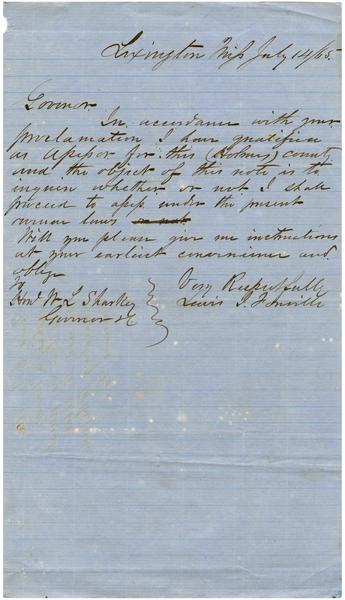 Lexington Miſs July 14/65.
Governor.
In accordance with your
proclamation I have qualified
as Aſseſsor for this (Holmes) county
and the object of this note is to
inquire whether or not I shall
proceed to aſseſs under the present
revenue laws
Will you please give me instructions
at your earliest convenience and
oblige
Very Respectfully
Lewis J.
To
Hon. Wm L Sharkey
Governor &c